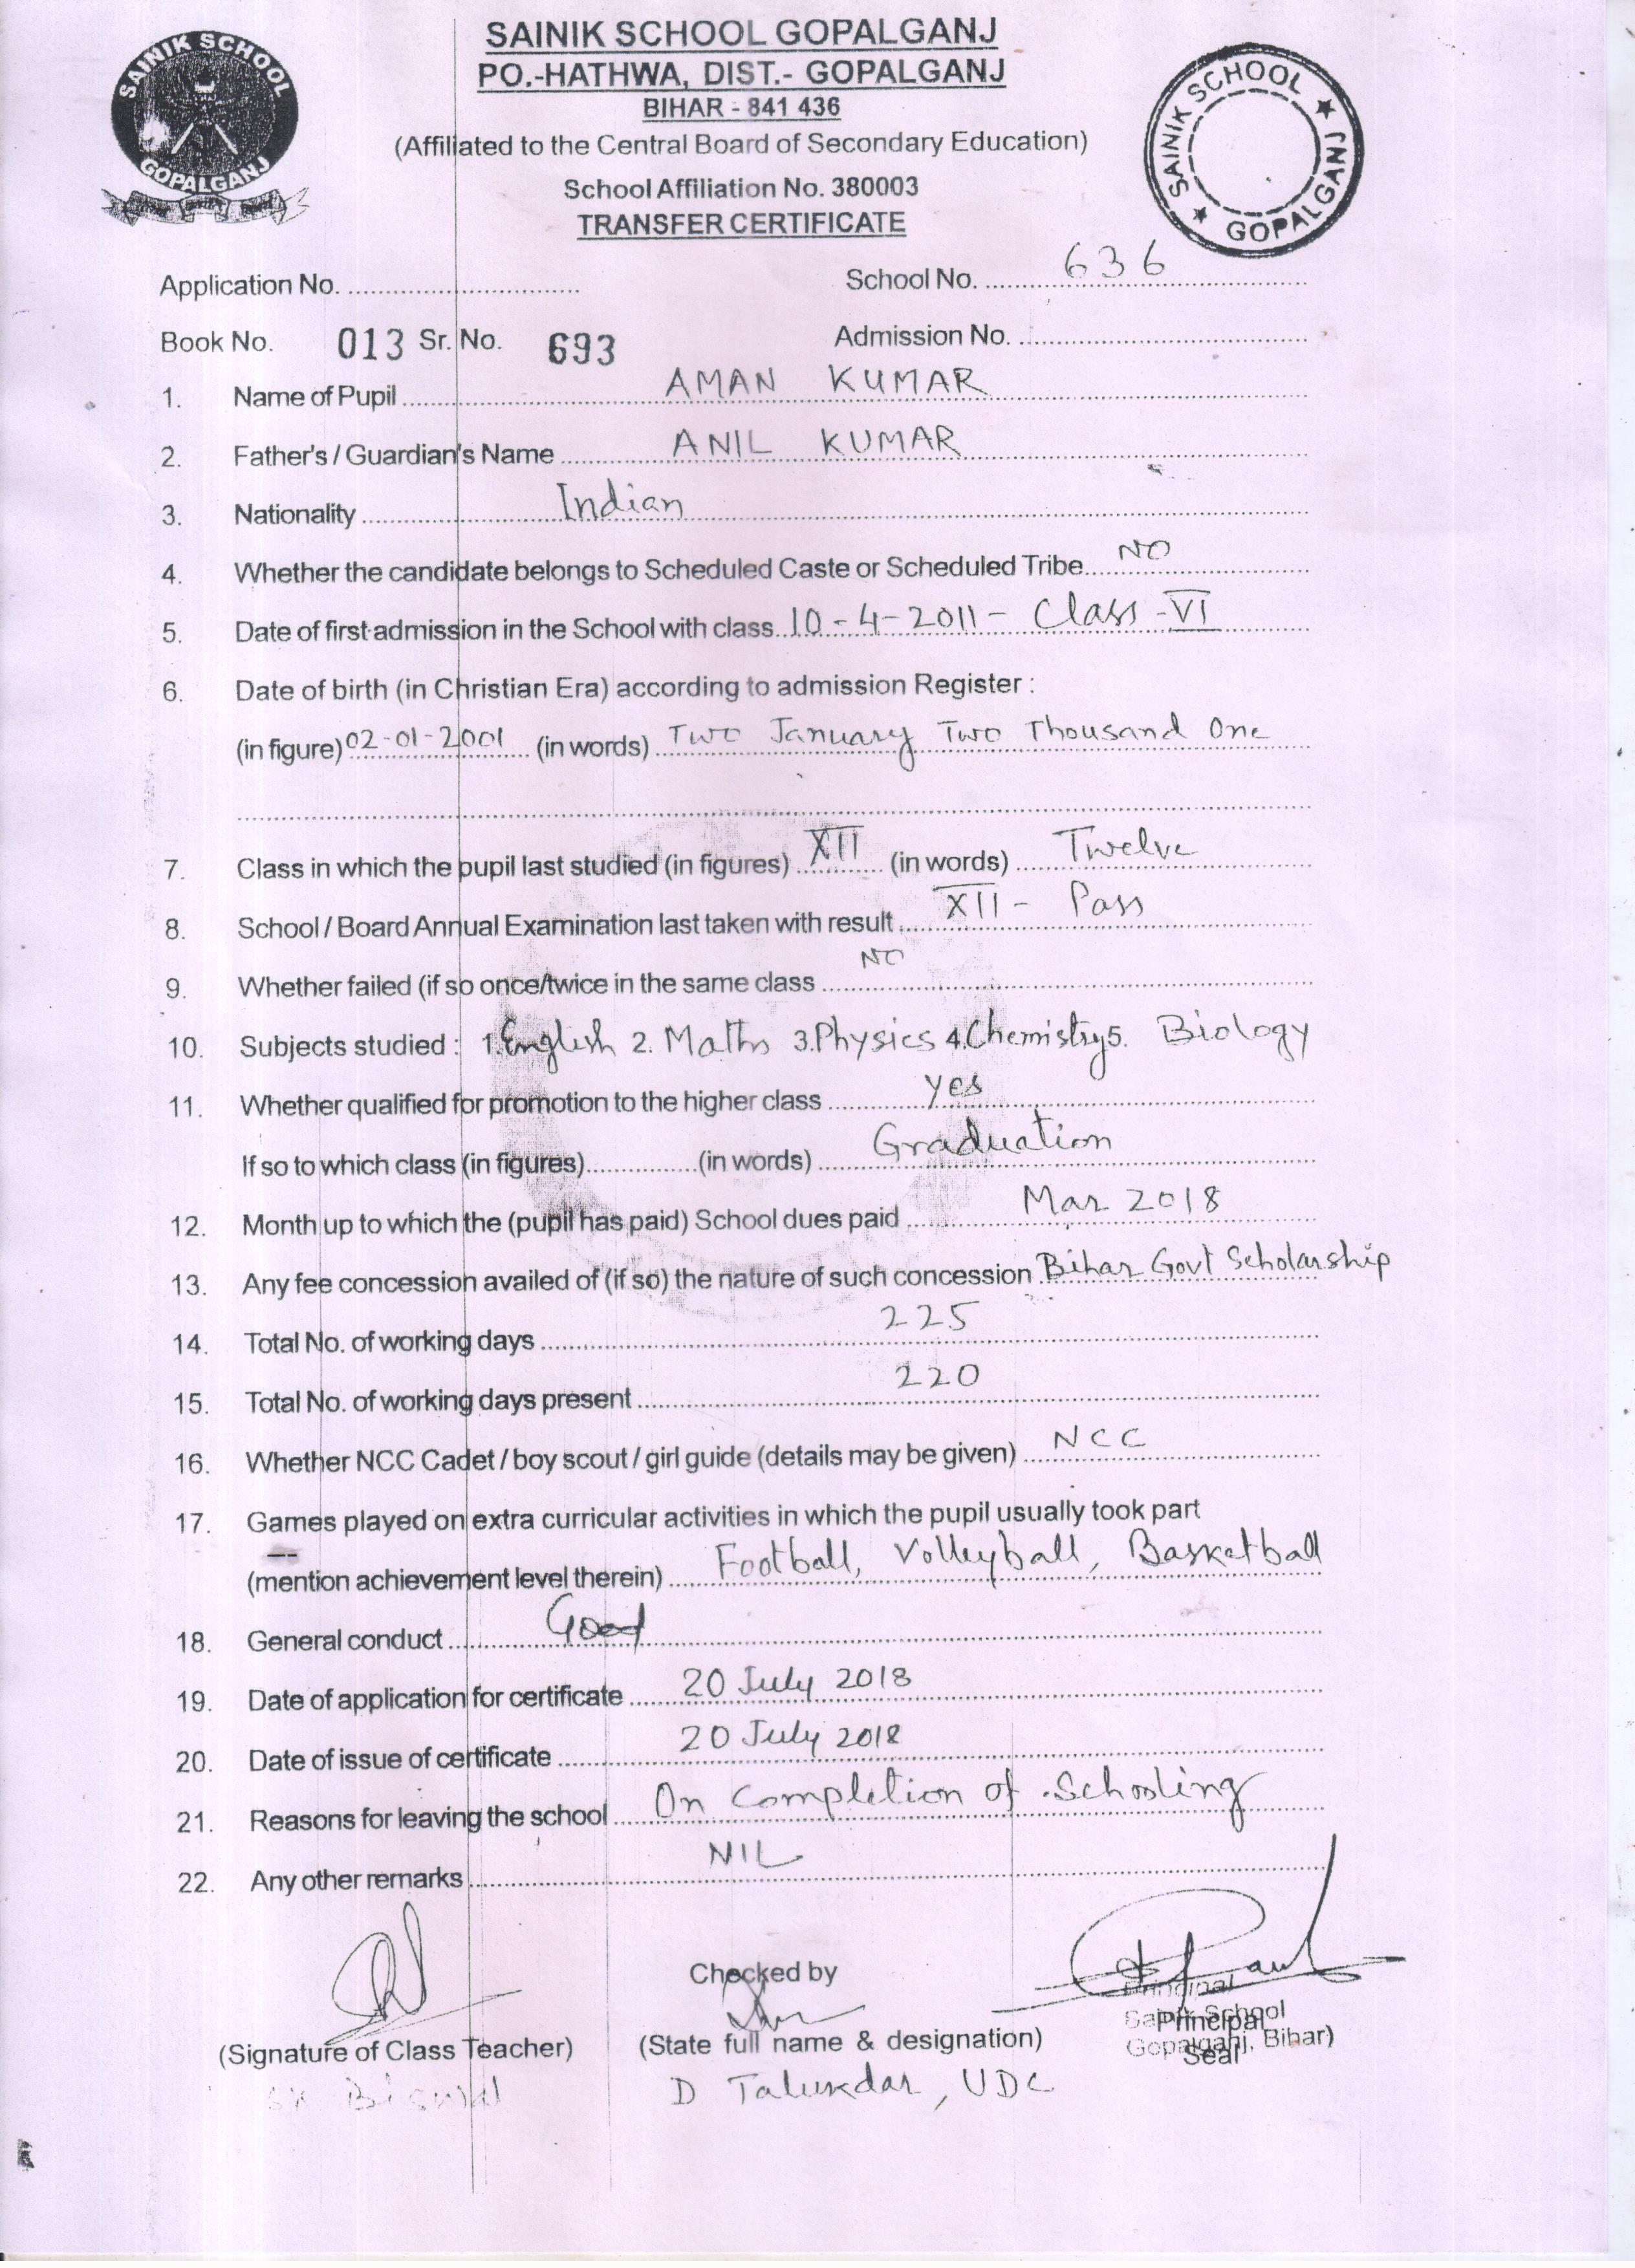 SAINIK SCHOOL
GOPALGANJ
SAINIK SCHOOL GOPALGANJ
PO.-HATHWA, DIST.- GOPALGANJ
BIHAR - 841 436
(Affiliated to the Central Board of Secondary Education)
School Affiliation No. 380003
TRANSFER CERTIFICATE
SAINIK SCHOOL ★ GOPALGANJ ★
Application No. .............................. School No. 636
Book No. 013 Sr. No. 693 Admission No. ..............................
1. Name of Pupil AMAN KUMAR
2. Father's / Guardian's Name ANIL KUMAR
3. Nationality Indian
4. Whether the candidate belongs to Scheduled Caste or Scheduled Tribe NO
5. Date of first admission in the School with class 10-4-2011 - Class - VI
6. Date of birth (in Christian Era) according to admission Register :
(in figure) 02-01-2001 (in words) Two January Two Thousand One
7. Class in which the pupil last studied (in figures) XII (in words) Twelve
8. School / Board Annual Examination last taken with result XII - Pass
9. Whether failed (if so once/twice in the same class NO
10. Subjects studied : 1.English 2. Maths 3.Physics 4.Chemistry 5. Biology
11. Whether qualified for promotion to the higher class yes
If so to which class (in figures)................(in words) Graduation
12. Month up to which the (pupil has paid) School dues paid Mar 2018
13. Any fee concession availed of (if so) the nature of such concession Bihar Govt Scholarship
14. Total No. of working days 225
15. Total No. of working days present 220
16. Whether NCC Cadet / boy scout / girl guide (details may be given) NCC
17. Games played on extra curricular activities in which the pupil usually took part
(mention achievement level therein) Football, Volleyball, Basketball
18. General conduct Good
19. Date of application for certificate 20 July 2018
20. Date of issue of certificate 20 July 2018
21. Reasons for leaving the school On Completion of Schooling
22. Any other remarks NIL
Checked by
Principal
Sainik School
Principal
(Signature of Class Teacher) (State full name & designation) Gopalganj, Bihar)
Seal
D Talukdar, UDC